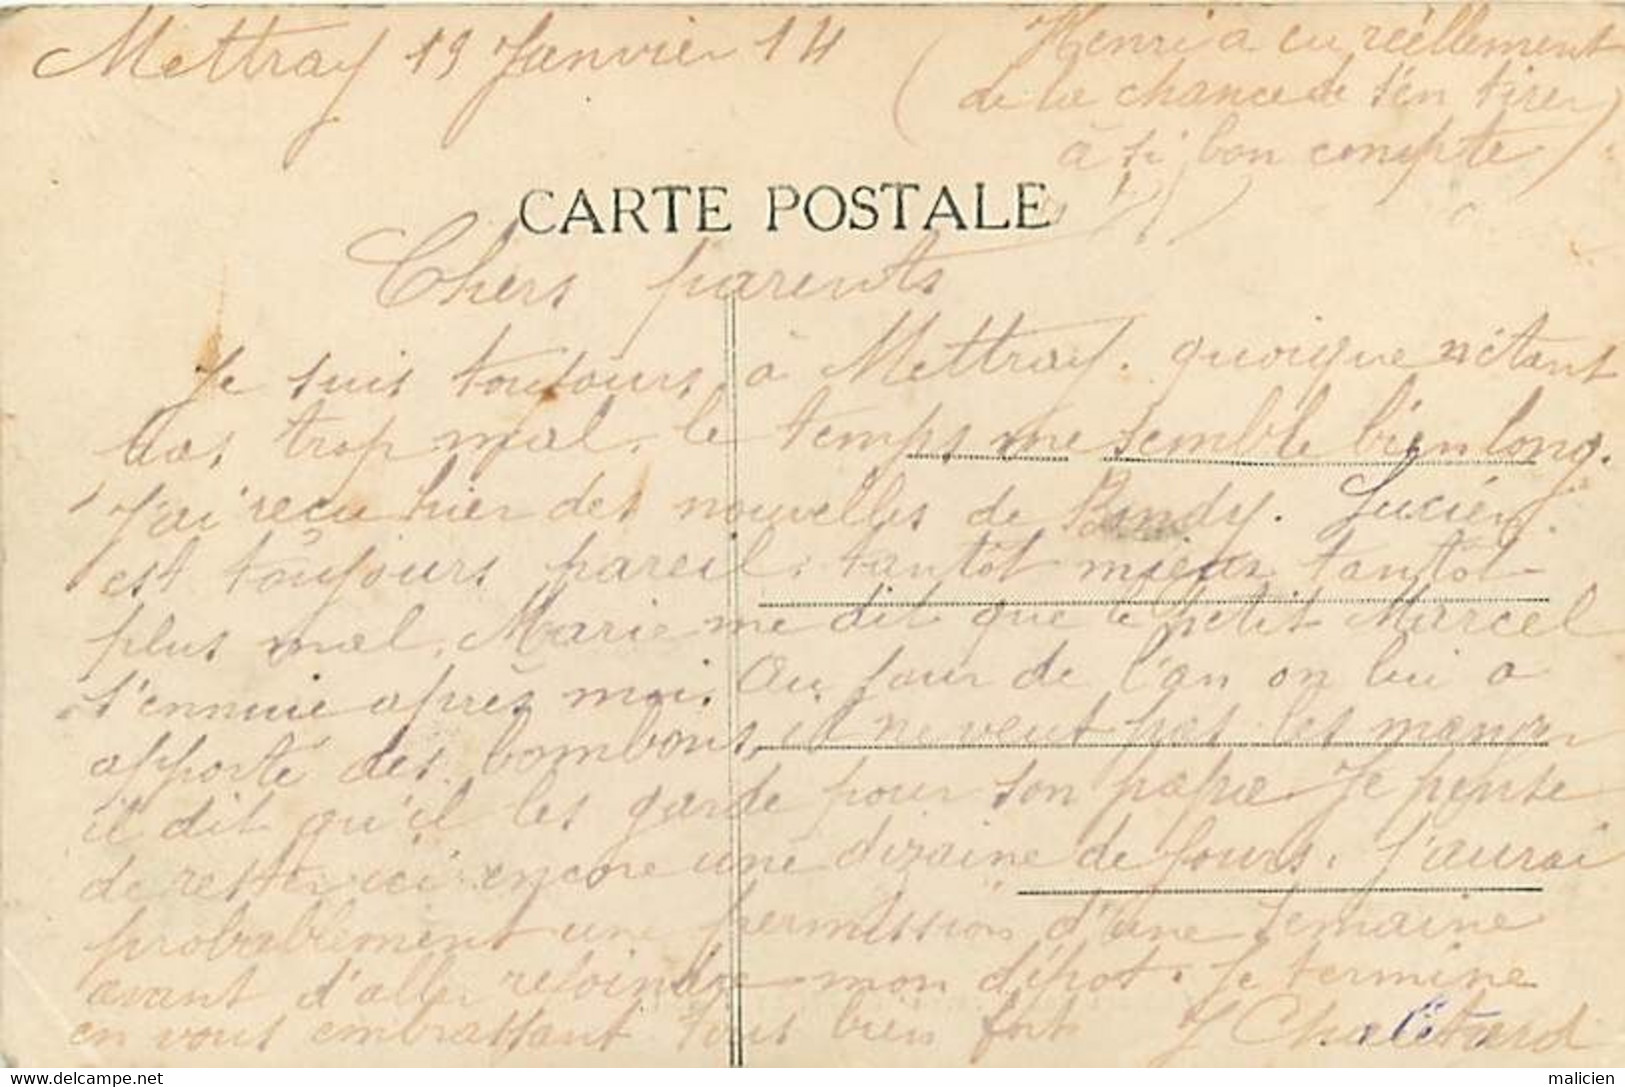 Mettray 19 Janvier 14
(Henri a eu réellement
de la chance de s'en tirer
à si bon compte)
CARTE POSTALE
Chers parents
Je suis toujours à Mettray. quoique n'étant
pas trop mal, le temps me semble bien long.
J'ai reçu hier des nouvelles de Bondy. Lucien
est toujours pareil, tantôt mieux tantôt
plus mal. Marie me dit que le petit Marcel
s'ennuie après moi. Au jour de l'an on lui a
apporté des bombons, il ne veut pas les manger
il dit qu'il les garde pour son papa. Je pense
de rester ici encore une dizaine de jours. J'aurai
probablement une permission d'une semaine
avant d'aller rejoindre mon dépot. Je termine
en vous embrassant tous bien fort J Chalitard
delcampe.net
malicien